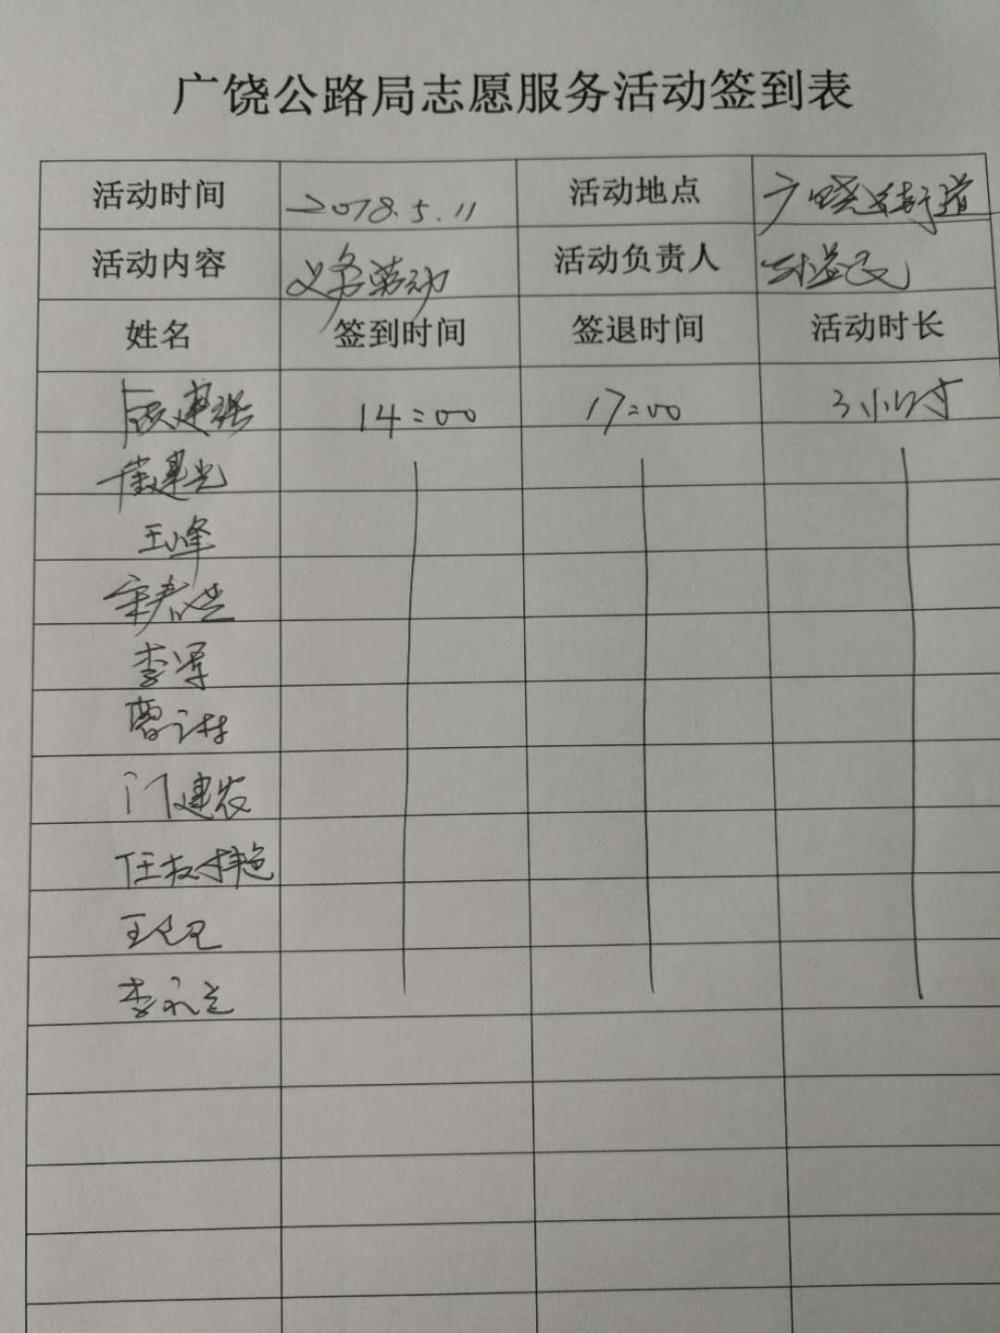 广饶公路局志愿服务活动签到表
活动时间 2018.5.11 活动地点 广饶街道
活动内容 义务劳动 活动负责人
姓名 签到时间 签退时间 活动时长
顾建强 14:00 17:00 3小时
崔建光
王峰
李军
门建农
李永兰